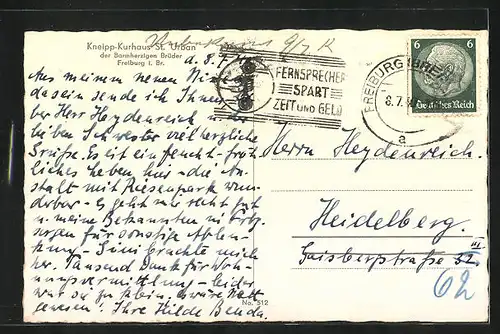 Kneipp-Kurhaus St. Urban
der Barmherzigen Brüder
Freiburg i. Br.
d. 8.7.
Aus meinem neuen
dasein sende ich Ihnen
Herr Heydenreich u. Ihrer
lieben Schwester viel herzliche
Grüße. Es ist ein feucht-fröh-
liches Leben hier - die An-
stalt mit Riesenpark wun-
derbar - es geht mir recht gut
u. meine Bekannten in
sorgen für sonstige Ablen-
kung - brachte mich
her. Tausend Dank für Woh-
nungsvermittlung - leider
war sie zu klein,
gewesen! Ihre Hilde Benda.
FERNSPRECHER
SPART
ZEIT UND GELD
FREIBURG (BREISGAU)
8.7.
a
6 6
Deutsches Reich
Herrn Heydenreich.
Heidelberg.
Gaisbergstraße
62
No. 512